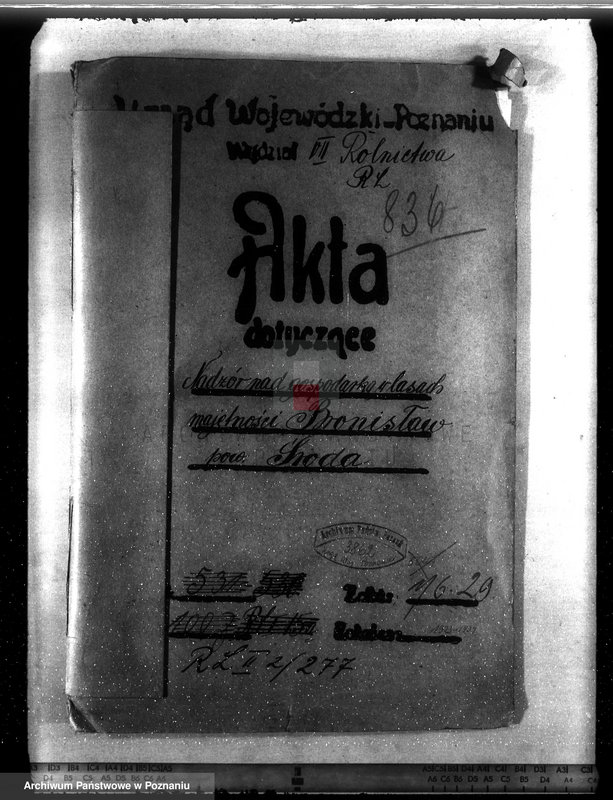 Urząd Wojewódzki-Poznaniu
Wydział VII Rolnictwa
RL
836
Akta
dotyczące
Nadzór nad gospodarką w lasach
majętności Bronisław
pow. Środa
531
Archiwum Państw. Poznań
3868
1/6.29
1007
RL II 2/277
Archiwum Państwowe w Poznaniu